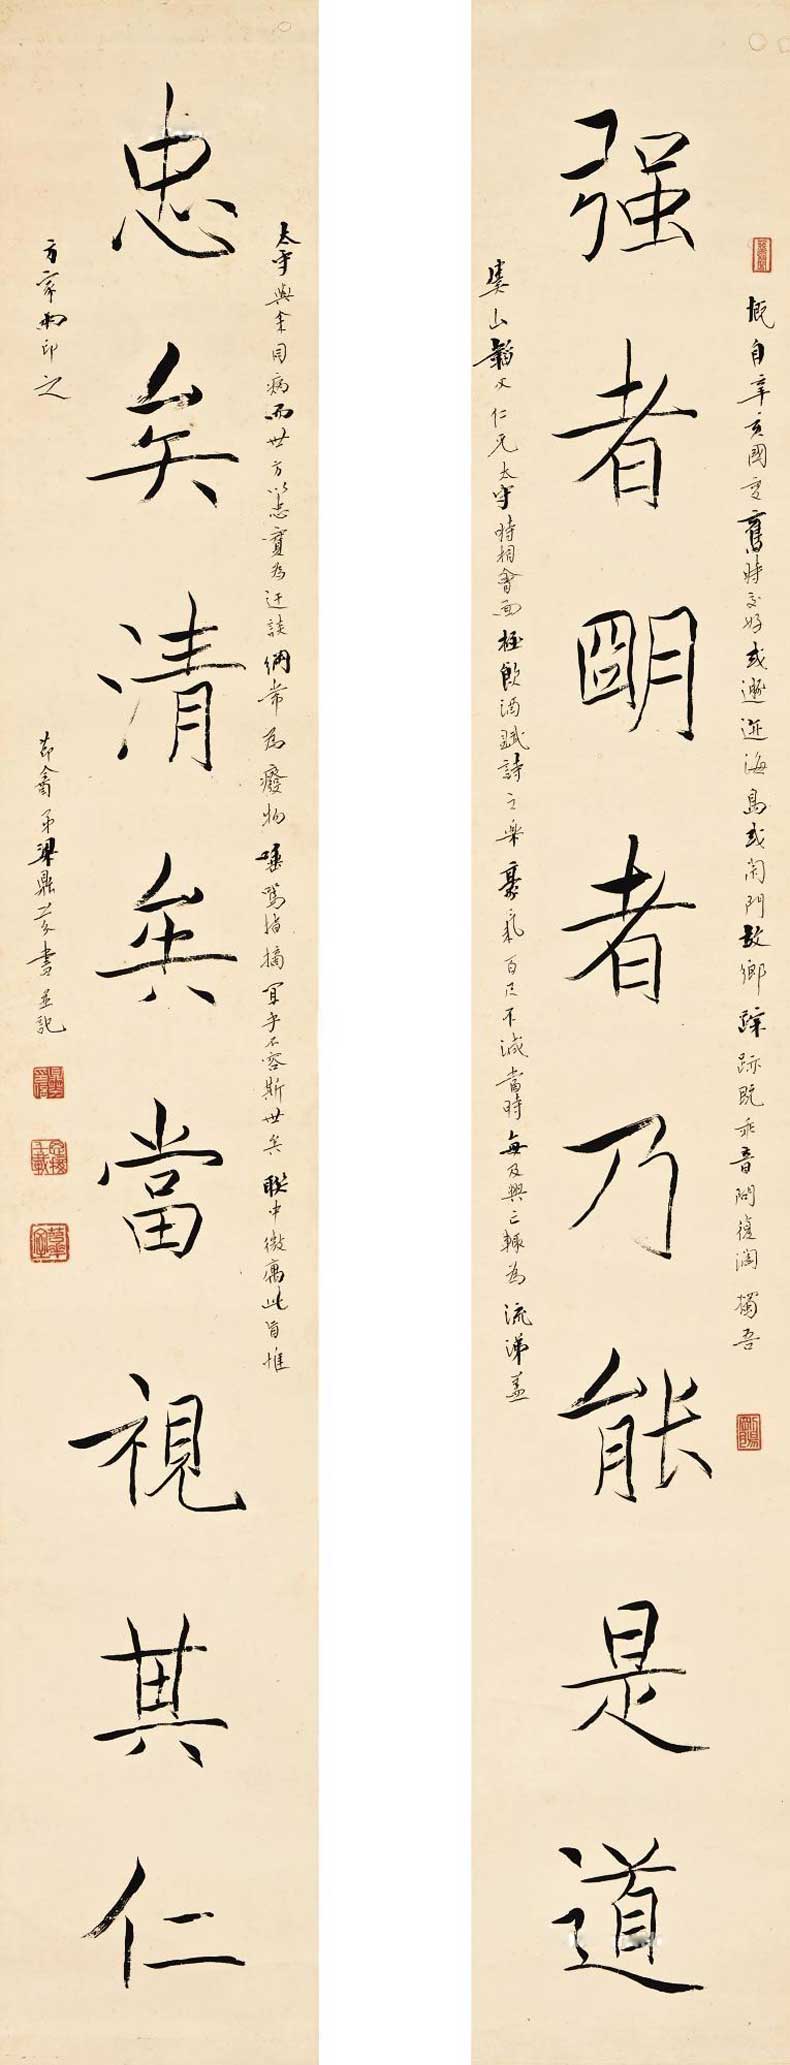 强者朙者乃能是道
慨自辛亥國變舊時交好或遯迹海島或閉門故鄉踪跡既乖音問復濶獨吾
虞山韜父仁兄太守時相會面極飲酒賦詩之樂豪氣百尺不減當時每及興亡輒為流涕蓋
忠矣清矣當視其仁
太守與余同病而世方以忠實為迂談綱常為癈物唾罵指摘宜乎不容斯世矣聯中微寓此旨惟
方家兩印之
節盦弟梁鼎芬書並記